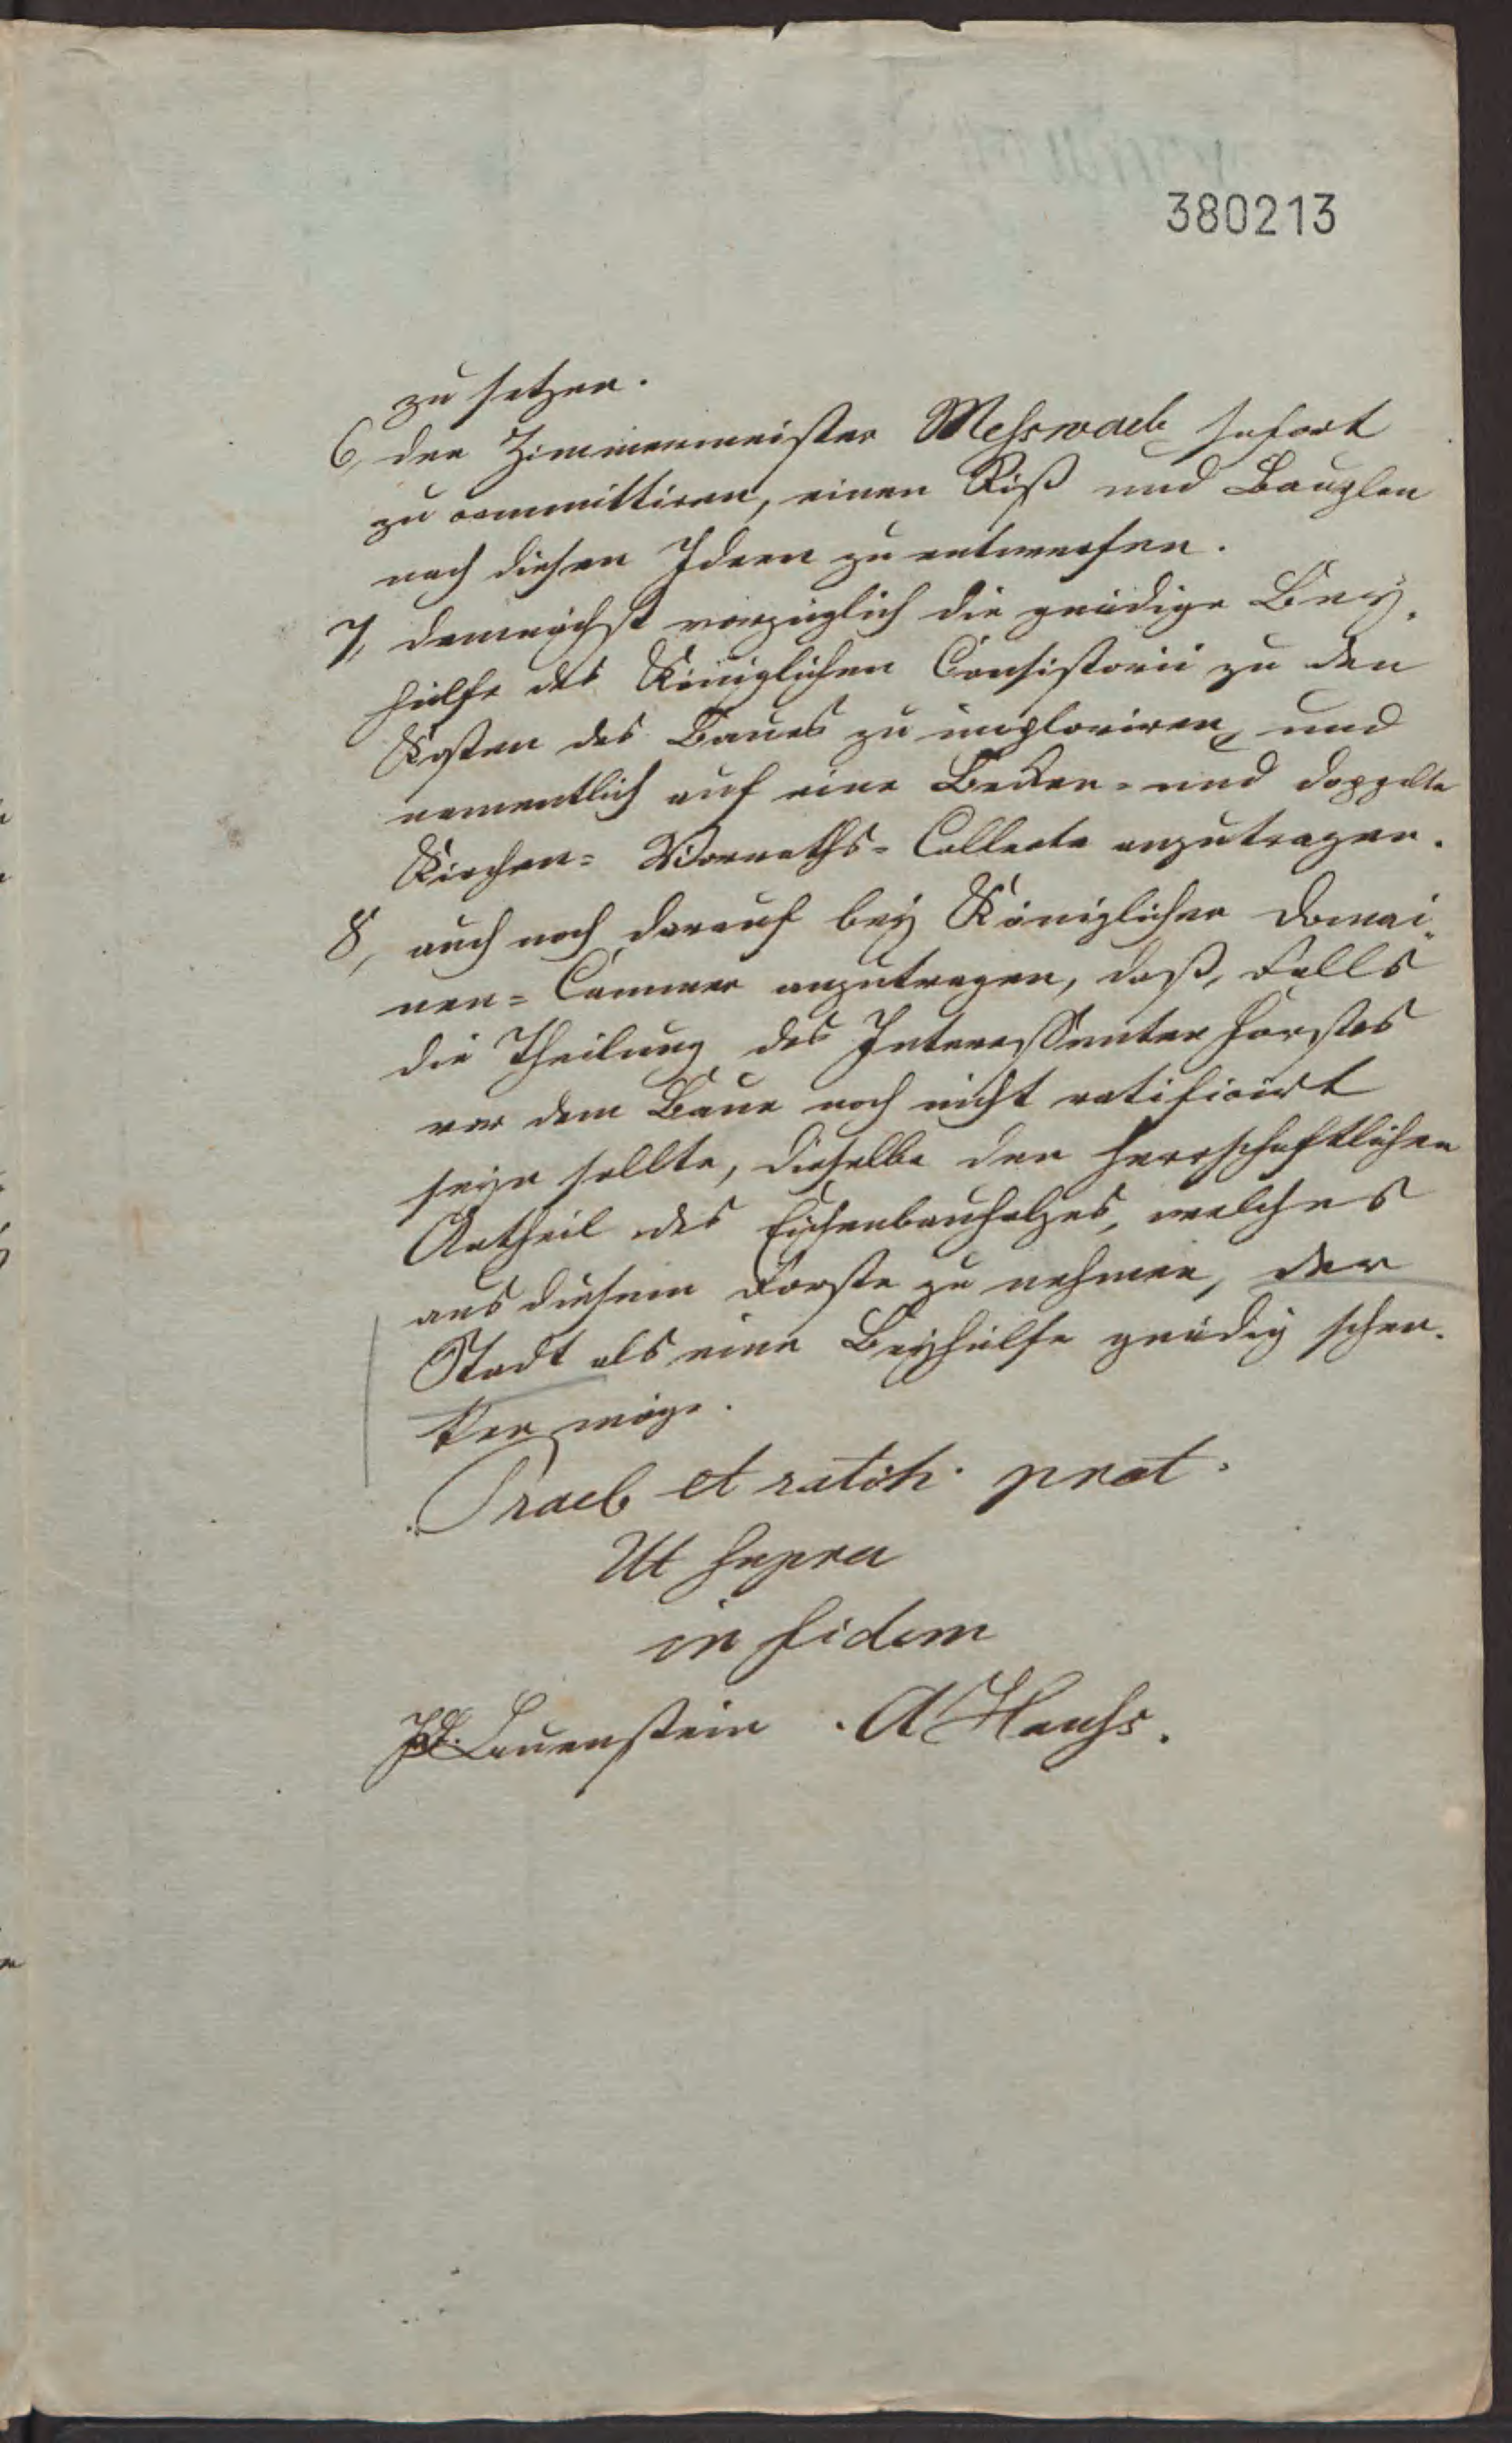 380213
zu setzen.
6, den Zimmermeister Messwarb sofort
zu committiren, einen Riß und Bauplan
nach diesen Ideen zu entwerfen.
7, demnächst vorzüglich die gnädige Bey-
hülfe des Königlichen Consistorii zu den
Kosten des Baues zu imploriren, und
namentlich auf eine Becken- und doppelte
Kirchen- Vorraths- Collecte anzutragen.
8, auch noch darauf bey Königlicher Domai-
nen- Cammer anzutragen, daß, Falls
die Theilung des Interessenten Forstes
vor dem Baue noch nicht ratificirt
seyn sollte, dieselbe den herrschaftlichen
Antheil des Eichenbauholzes, welches
aus diesem Forste zu nehmen, der
Stadt als eine Beyhülfe gnädig schen-
ken möge.
Prael et ratih. prot.
Ut supra
in fidem
Lauenstein. A